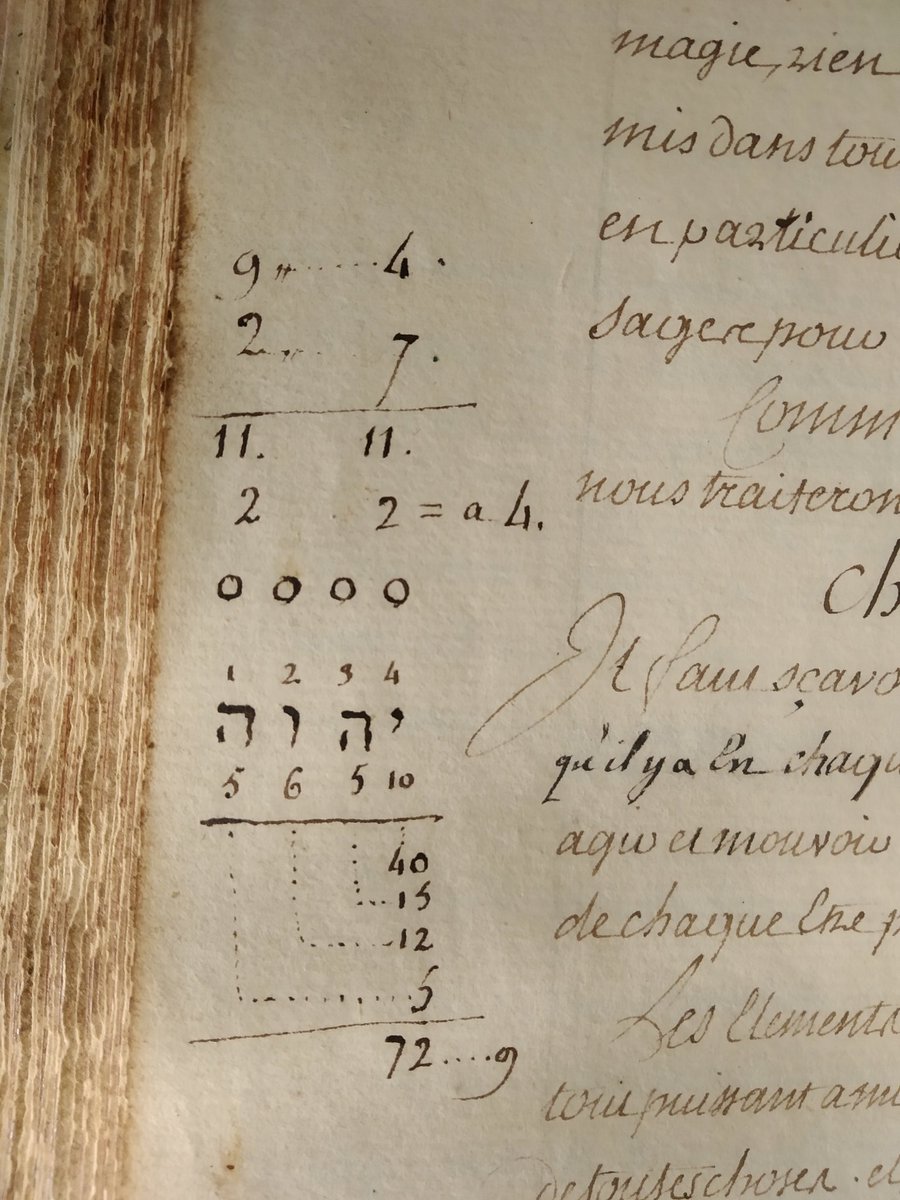 9,,......4.
2..,,..7.
11. 11.
2 2 = a 4.
0 0 0 0
1 2 3 4
יהוה
5 6 5 10
40
15
12
5
72....9
magie, rien
mis dans tou
en particulie
Comm
nous traiteron
Ch
Il faut sçavo
qu'il y a En chaqu
de chaque Etre p
Les Elements
tout puissant a mi
de toutes choses. et